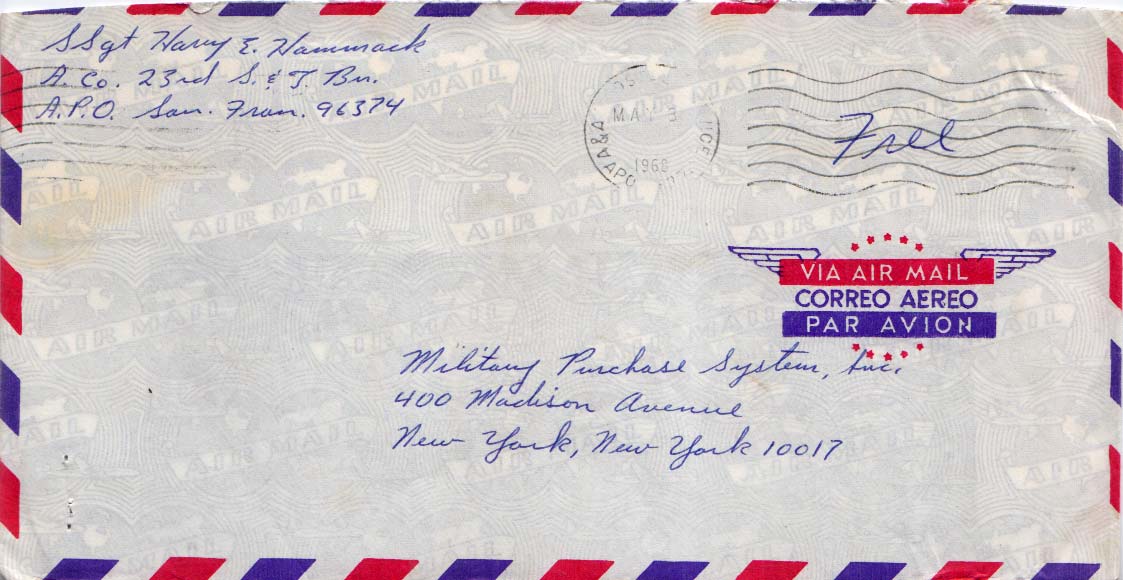 SSgt Harry E. Hammack
A. Co. 23rd S. & T. Bn.
A.P.O. San. Fran. 96374
MAY 3
1968
A&A
APO
Free
VIA AIR MAIL
CORREO AEREO
PAR AVION
Military Purchase System, Inc.
400 Madison Avenue
New York, New York 10017
AIR MAIL